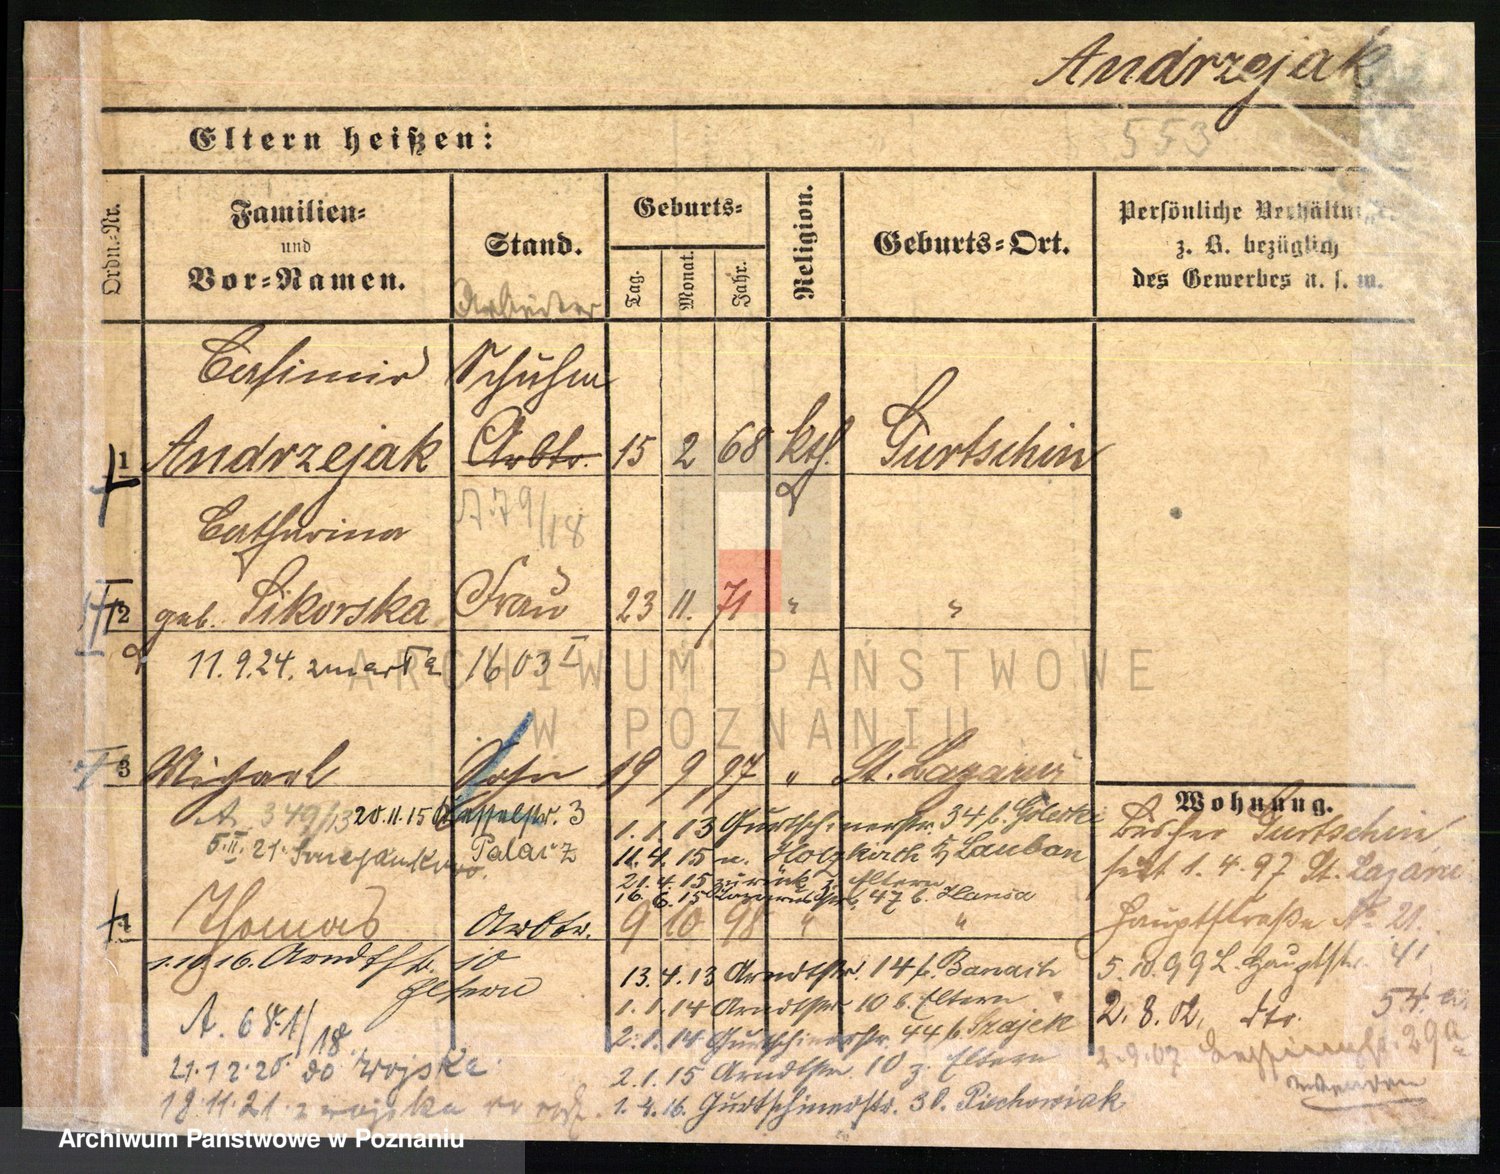 Andrzejak
553
Eltern heißen:
Ordn.-Nr.
Familien-
und
Vor-Namen.
Stand.
Arbeiter
Geburts-
Tag.
Monat.
Jahr.
Religion.
Geburts-Ort.
Persönliche Verhältnisse
z. B. bezüglich
des Gewerbes u. s. w.
Casimir Schuhm
1 Andrzejak Arbtr. 15 2 68 kth. Gurtschin
Catharina A 79/18
2 geb. Sikorska Frau 23 11. 71 " "
11.9.24. zmarła 1603 I
3 Michael Sohn 19 9 97 " St. Lazarus
Wohnung.
A 349/13 20.11.15 Kasselstr. 3
5.II.21.
Palacz
1.1.13 Gurtschinerstr. 34 b.
11.4.15 n. Holzkirch b/ Lauban
21.4.15 zurück z. Eltern
16.6.15 47 b. Hansa
Bisher Gurtschin,
seit 1.4.97 St. Lazarus
Hauptstraße No 21.
5.10.99 L. Hauptstr. 41
2.8.02. dto. 54
2.9.07 29a
wenden
4 Thomas Arbtr. 9 10 98 " "
1.10.16. Arndtstr. 10
Eltern
13.4.13 Arndtstr. 14 b. Banach
1.1.14 Arndtstr 10 b. Eltern
2.1.14 Gurtschinerstr. 44 b. Szajek
2.1.15 Arndtstr. 10 z. Eltern
1.4.16. Gurtschinerstr. 30. Piechowiak
A. 681/18
21.12.20. do wojska
18.11.21. z wojska
ARCHIWUM PAŃSTWOWE
W POZNANIU
Archiwum Państwowe w Poznaniu